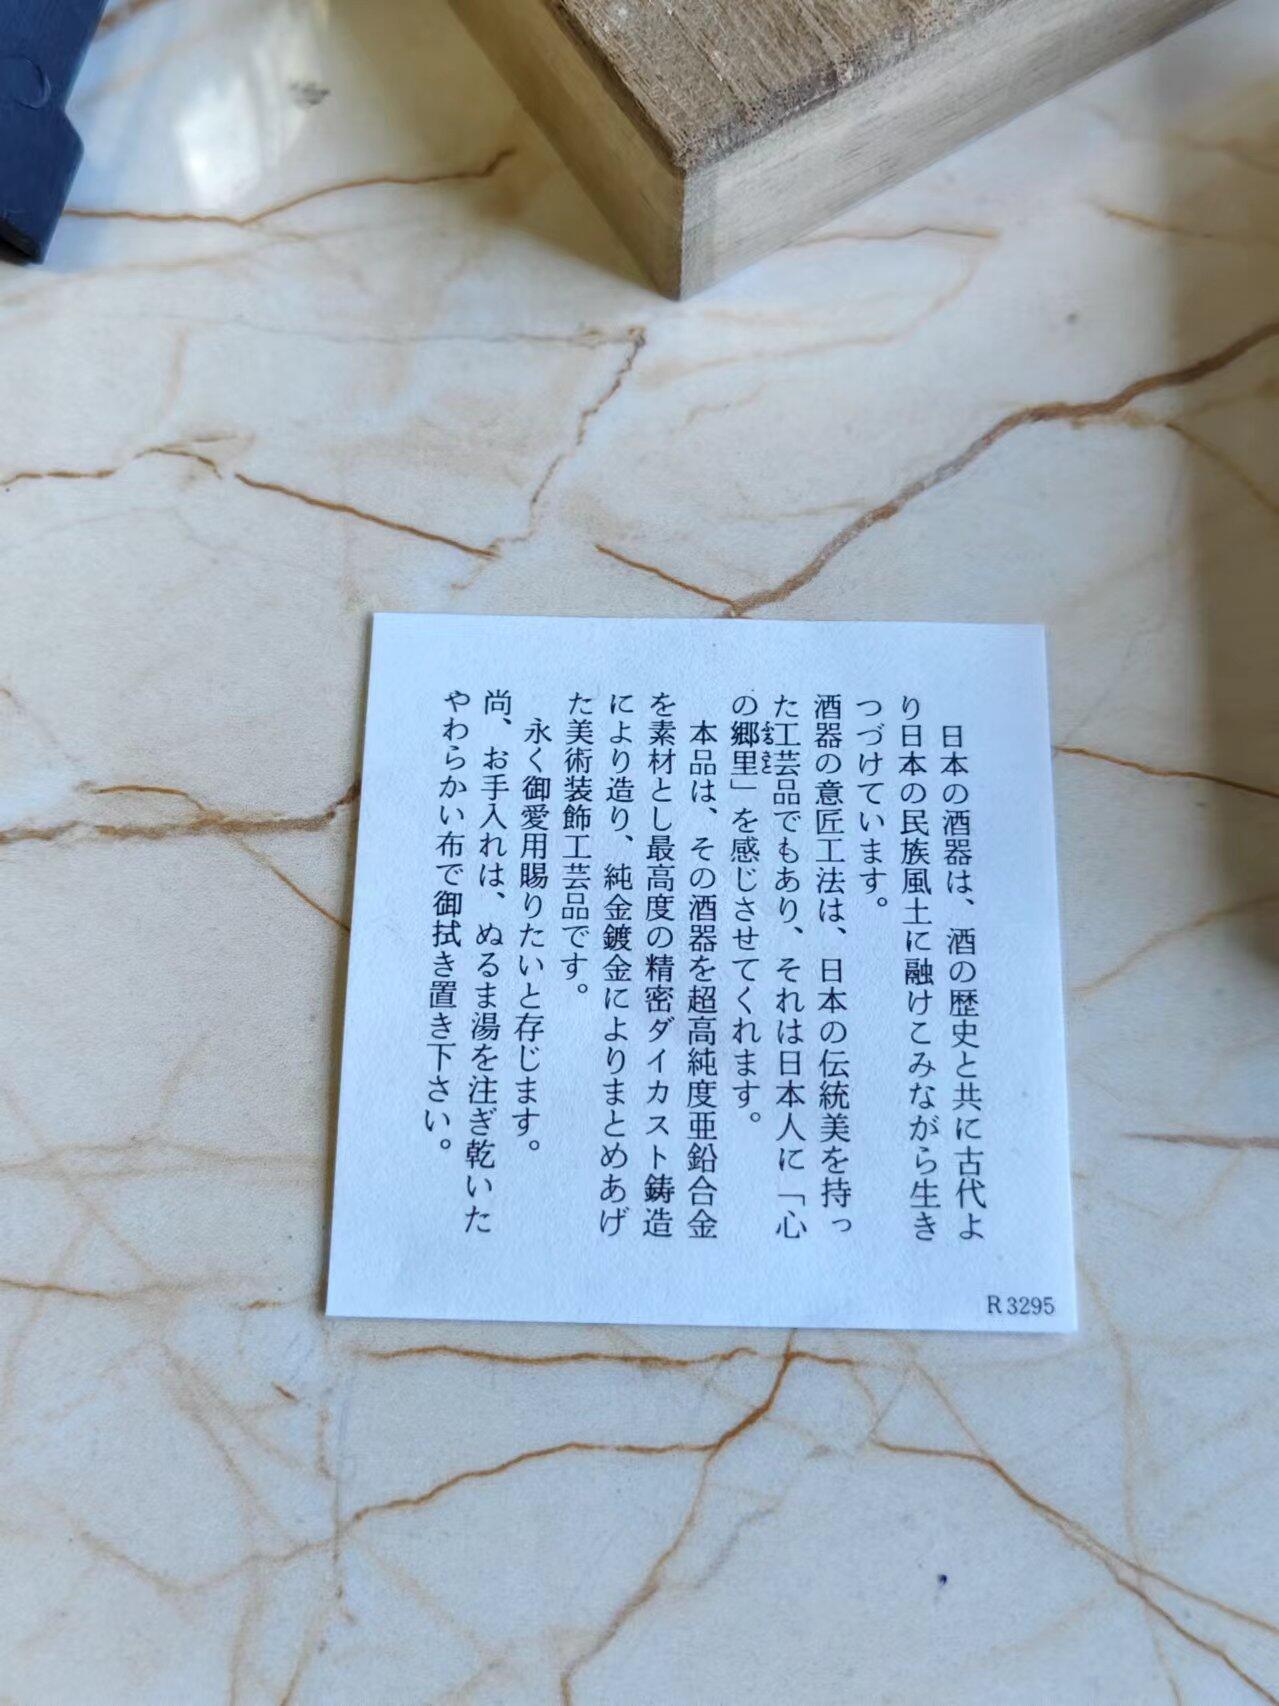 日本の酒器は、酒の歴史と共に古代よ
り日本の民族風土に融けこみながら生き
つづけています。
酒器の意匠工法は、日本の伝統美を持っ
た工芸品でもあり、それは日本人に「心
の郷里」を感じさせてくれます。
ふるさと
本品は、その酒器を超高純度亜鉛合金
を素材とし最高度の精密ダイカスト鋳造
により造り、純金鍍金によりまとめあげ
た美術装飾工芸品です。
永く御愛用賜りたいと存じます。
尚、お手入れは、ぬるま湯を注ぎ乾いた
やわらかい布で御拭き置き下さい。
R3295